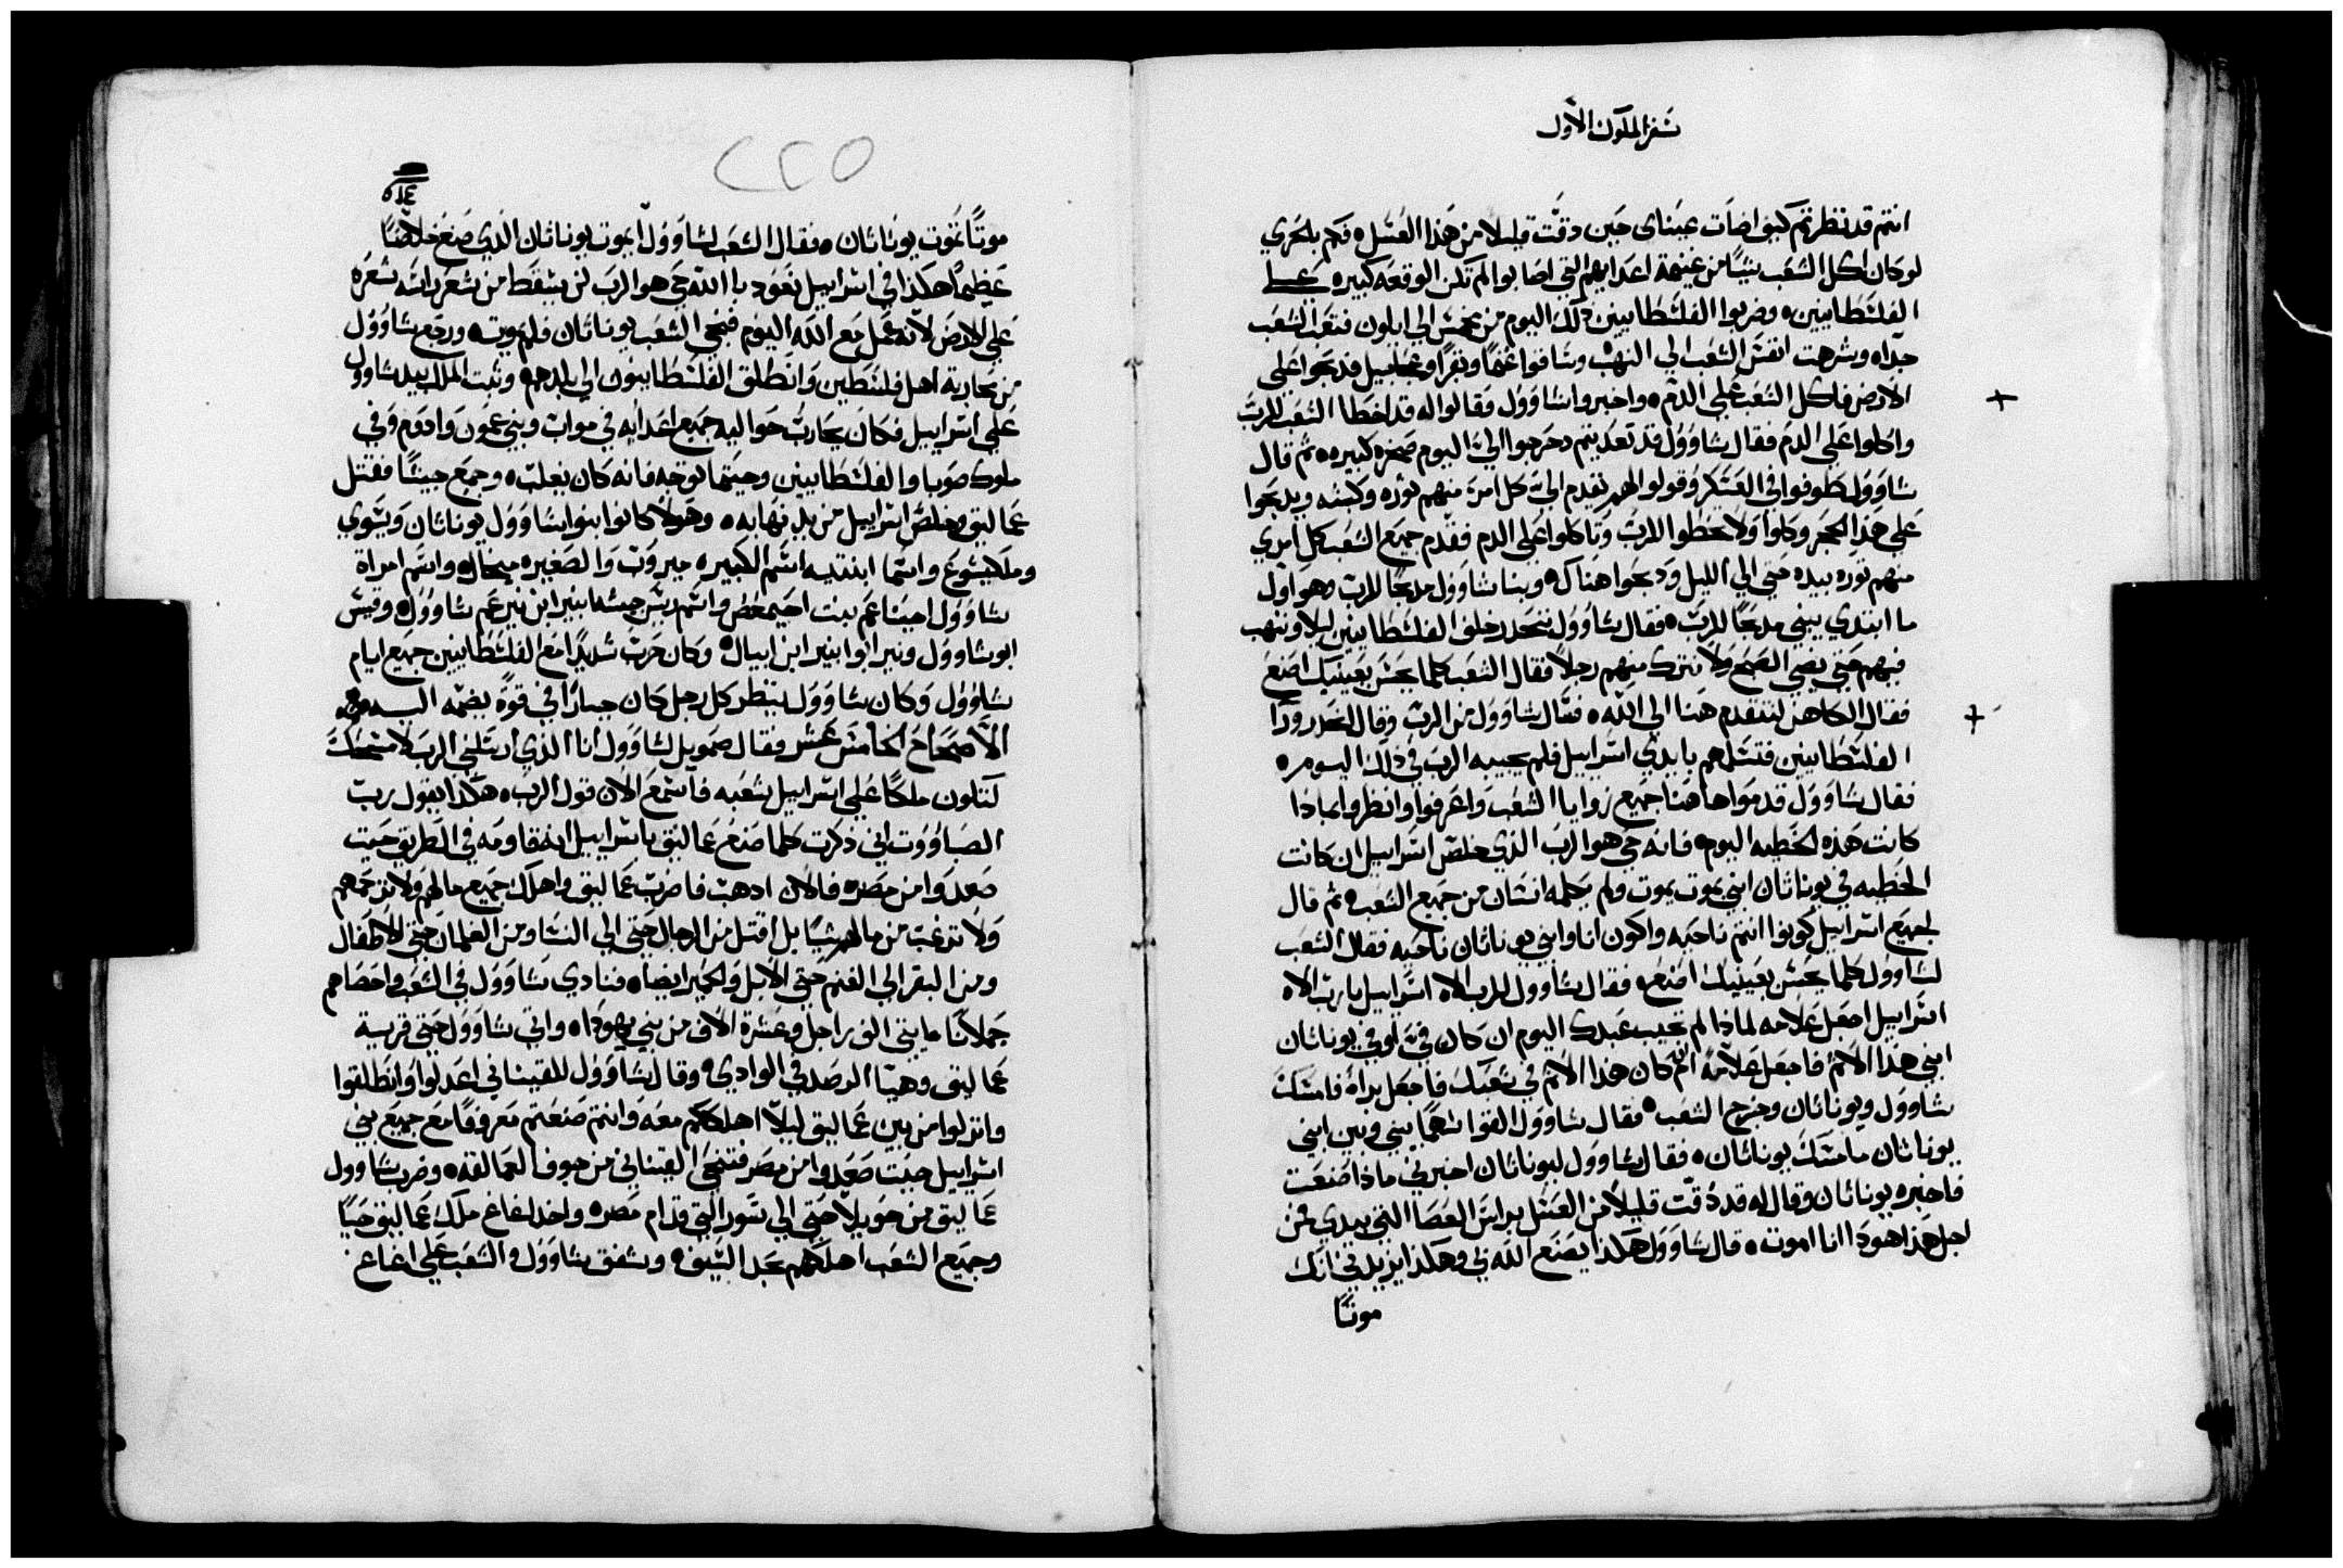 سفر الملوك الاول
انتم قد نظرتم كيف اضات عيناى حين دقت قليلا من هذا العسل ه فكم بلحري
لو كان اكل الشعب شيا من غنيمة اعدايهم التي اصابوا لم تكن الوقعه كبيره على
الفلسطانيين ه وضربوا الفلسطانيين ذلك اليوم من مخمس الي ايلون فتعب الشعب
جدا ه وشرهت انفس الشعب الي النهب وساقوا غنما وبقرا وعجاجيل فدبحوا على
الارض فاكل الشعب على الدم ه واخبروا شاوول وقالوا له قد اخطا الشعب للرب
واكلوا على الدم فقال شاوول قد تعديتم دحرجوا الي اليوم صخره كبيره ه ثم قال
شاوول طوفوا في العسكر وقولوا لهم يقدم الي كل امرء منهم توره وكبشه ويدبحوا
على هذا الحجر وكلوا ولا تخطوا للرب وتاكلوا على الدم فقدم جميع الشعب كل امري
منهم توره بيده حتي الي الليل ودبحوا هناك ه وبنا شاوول مدبحا للرب وهو اول
ما ابتدي يبني مدبحا للرب ه فقال شاوول ننحدر خلف الفلسطانيين ليلا وننهب
فيهم حتي يضي الصبح ولا نترك منهم رجلا فقال الشعب كلما يحسن بعينيك اصنع
فقال الكاهن لنتقدم هنا الي الله ه فسال شاوول من الرب وقال انحدر ورا
الفلسطانيين فتسلمهم بايدي اسراييل فلم يجيبه الرب في ذلك اليوم ه
فقال شاوول قدموا هاهنا جميع زوايا الشعب واعرفوا وانظروا بماذا
كانت هذه الخطيه اليوم ه فانه حي هو الرب الذي خلص اسراييل ان كانت
الخطيه في يوناثان ابني يموت يموت ولم يكلمه انسان من جميع الشعب ه ثم قال
لجميع اسراييل كونوا انتم ناحيه واكون انا وابني يوناثان ناحيه فقال الشعب
لشاوول كلما يحسن بعينيك اصنع ه فقال شاوول للرب الاه اسراييل يا رب الاه
اسراييل اجعل علامه لماذا لم تجيب عبدك اليوم ان كان في او في يوناثان
ابني هذا الاثم فاجعل علامه ام كان هذا الاثم في شعبك فاجعل براه فامسك
شاوول ويوناثان وخرج الشعب ه فقال شاوول القوا سهما بيني وبين ابني
يوناثان فامسك يوناثان ه فقال شاوول ليوناثان اخبرني ماذا صنعت
فاخبره يوناثان وقال له قد دقت قليلا من العسل براس العصا التي بيدي فمن
اجل هذا هودا انا اموت ه قال شاوول هكذا يصنع الله بي وهكذا يزيدني انك
موتا
٢٢٥
موتا تموت يوناثان ه فقال الشعب لشاوول ايموت يوناثان الذي صنع خلاصا
عظيما هكذا في اسراييل نعود بالله حي هو الرب لن يسقط من شعر راسه شعره
على الارض لانه عمل مع الله اليوم فنجي الشعب يوناثان فلم يموت ه ورجع شاوول
من محاربة اهل فلسطين وانطلق الفلسطانيون الي بلدهم ه وثبت الملك بيد شاوول
على اسراييل فكان يحارب حواليه جميع اعدايه في مواب وبني عمون وادوم وفي
ملوك صوبا والفلسطانيين وحيتما توجه فانه كان يغلب ه وجمع جيشا فقتل
عماليق وخلص اسراييل من يد نهابه ه وهولا كانوا بنوا شاوول يوناثان ويشوي
وملكيشوع واسما ابنتيه اسم الكبيره ميروب والصغيره ميخال ه واسم امراة
شاوول اخيناعم بنت اخيمعص واسم ريس جيشه ابنير ابن نير عم شاوول ه وقيس
ابو شاوول ونير ابوا ابنير ابن ابيال ه وكان حرب شديدا مع الفلسطانيين جميع ايام
شاوول وكان شاوول ينظر كل رجل كان جبارا في قوة يضمه اليه
الاصحاح الخامس عشر فقال صمويل لشاوول انا الذي ارسلني الرب لامسحك
لتكون ملكا علي اسراييل شعبه فاسمع الان قول الرب ه هكذا يقول رب
الصباووت اني ذكرت كلما صنع عماليق باسراييل انه قاومه في الطريق حيت
صعدوا من مصر ه فالان ادهب فاضرب عماليق واهلك جميع مالهم ولا ترحمهم
ولا ترغب من مالهم شيا بل اقتل من الرجال حتي الي النسا ومن الغلمان حتي الاطفال
ومن البقر الي الغنم حتي الابل والحمير ايضا ه فنادي شاوول في الشعب واحصاهم
جملانا مايتى الف راجل وعشرة الاف من بني يهودا ه واتي شاوول حتي قرية
عماليق وهيا الرصد في الوادي ه وقال شاوول للقيناني اعدلوا وانطلقوا
وانزلوا من بين عماليق ليلا اهلككم معه وانتم صنعتم معروفا مع جميع بني
اسراييل حيت صعدوا من مصر فتنحي القيناني من جوف العمالقه ه وضرب شاوول
عماليق من حويلا حتي الي سور التي قدام مصر ه واخد اغاغ ملك عماليق حيا
وجميع الشعب اهلكهم بحد السيف ه وشفق شاوول والشعب علي اغاغ